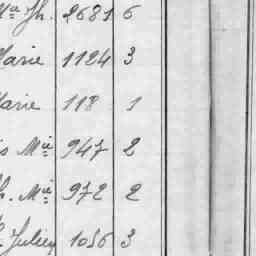 Mie Jh. 2681 6
Marie 1124 3
Marie 118 1
is Mie 947 2
h. Mie 972 2
Julien 1056 3